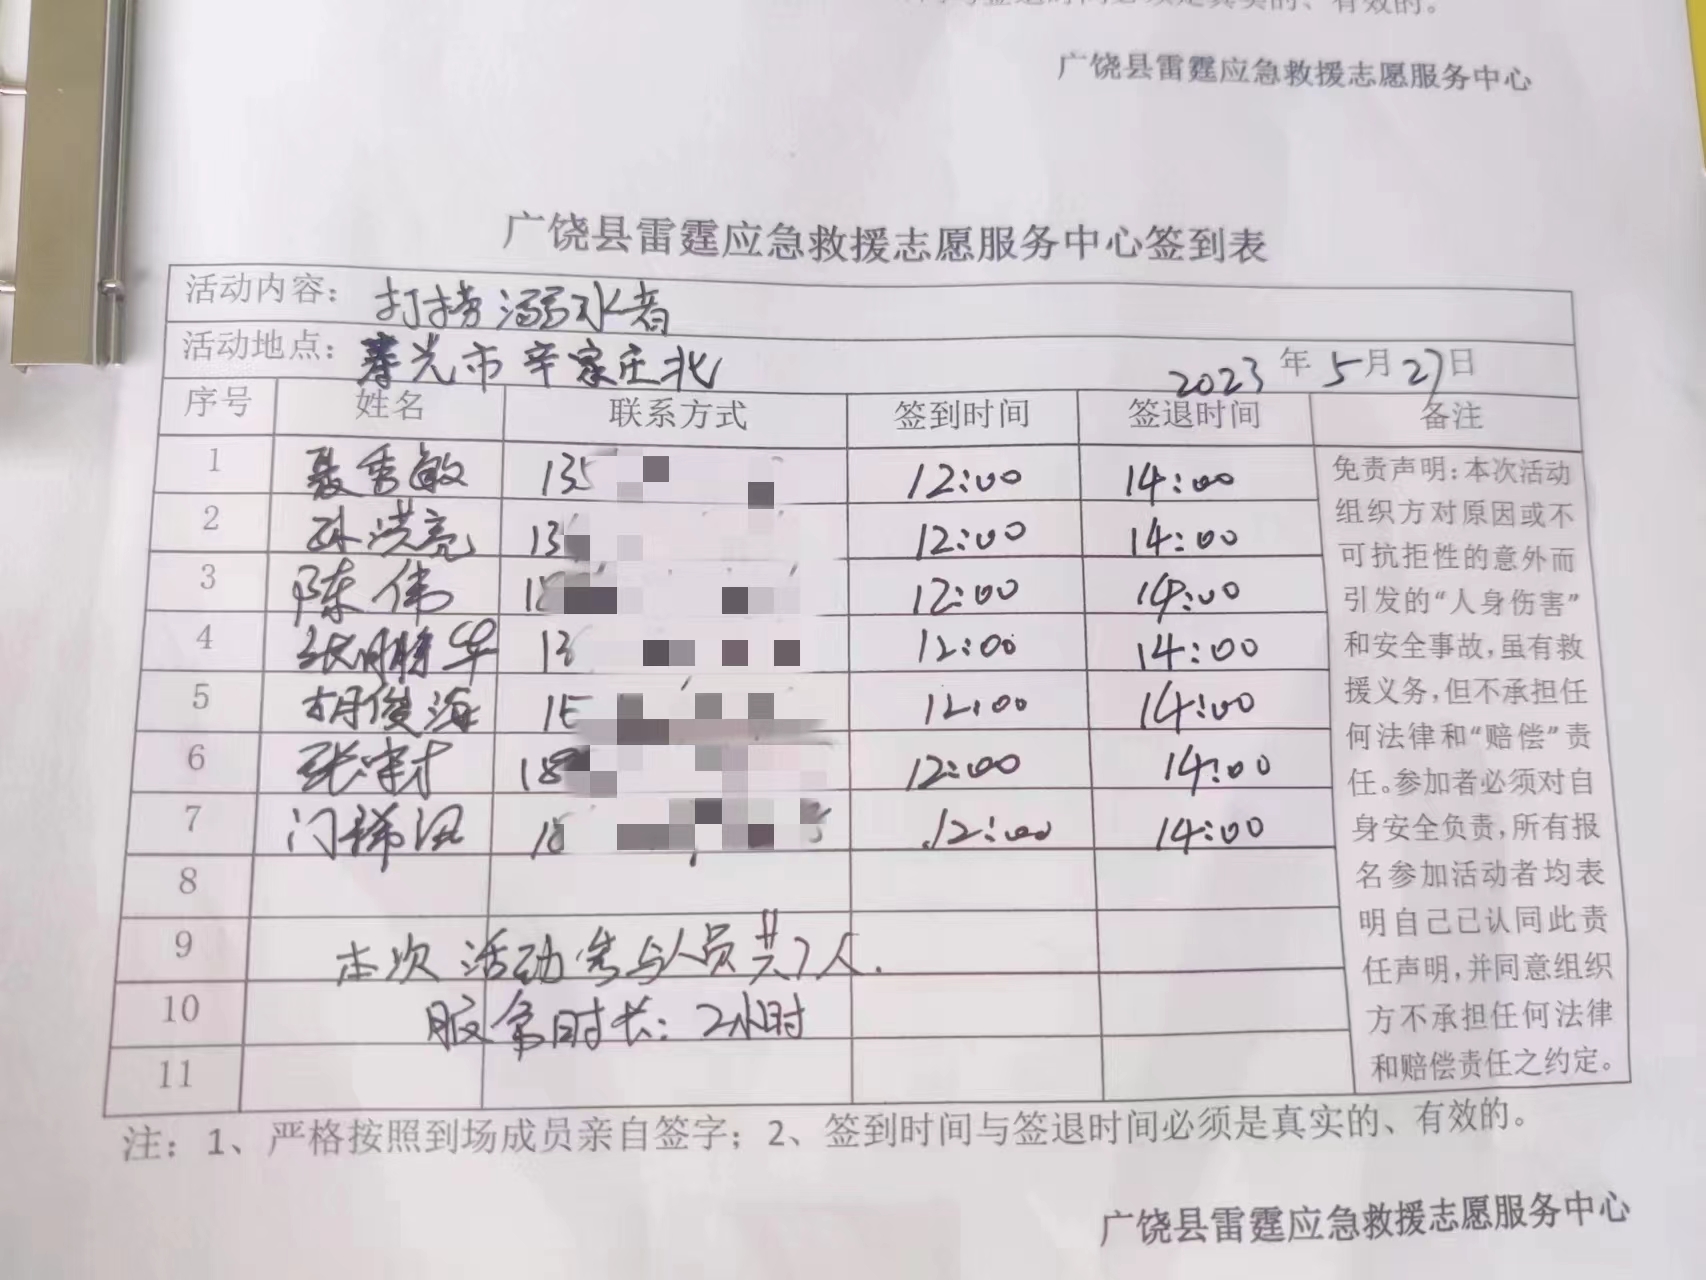 签退时间必须是真实的、有效的。
广饶县雷霆应急救援志愿服务中心
广饶县雷霆应急救援志愿服务中心签到表
活动内容： 打捞溺水者
活动地点： 寿光市辛家庄北 2023 年 5 月 27 日
序号 姓名 联系方式 签到时间 签退时间 备注
1 聂秀敏 135 12:00 14:00
2 孙洪亮 13 12:00 14:00
3 陈伟 18 12:00 14:00
4 张胜华 13 12:00 14:00
5 胡俊海 15 12:00 14:00
6 张 18 12:00 14:00
7 门 18 12:00 14:00
8
9 本次活动参与人员共7人.
10 服务时长：2小时
11
免责声明：本次活动
组织方对原因或不
可抗拒性的意外而
引发的“人身伤害”
和安全事故，虽有救
援义务，但不承担任
何法律和“赔偿”责
任。参加者必须对自
身安全负责，所有报
名参加活动者均表
明自己已认同此责
任声明，并同意组织
方不承担任何法律
和赔偿责任之约定。
注：1、严格按照到场成员亲自签字；2、签到时间与签退时间必须是真实的、有效的。
广饶县雷霆应急救援志愿服务中心